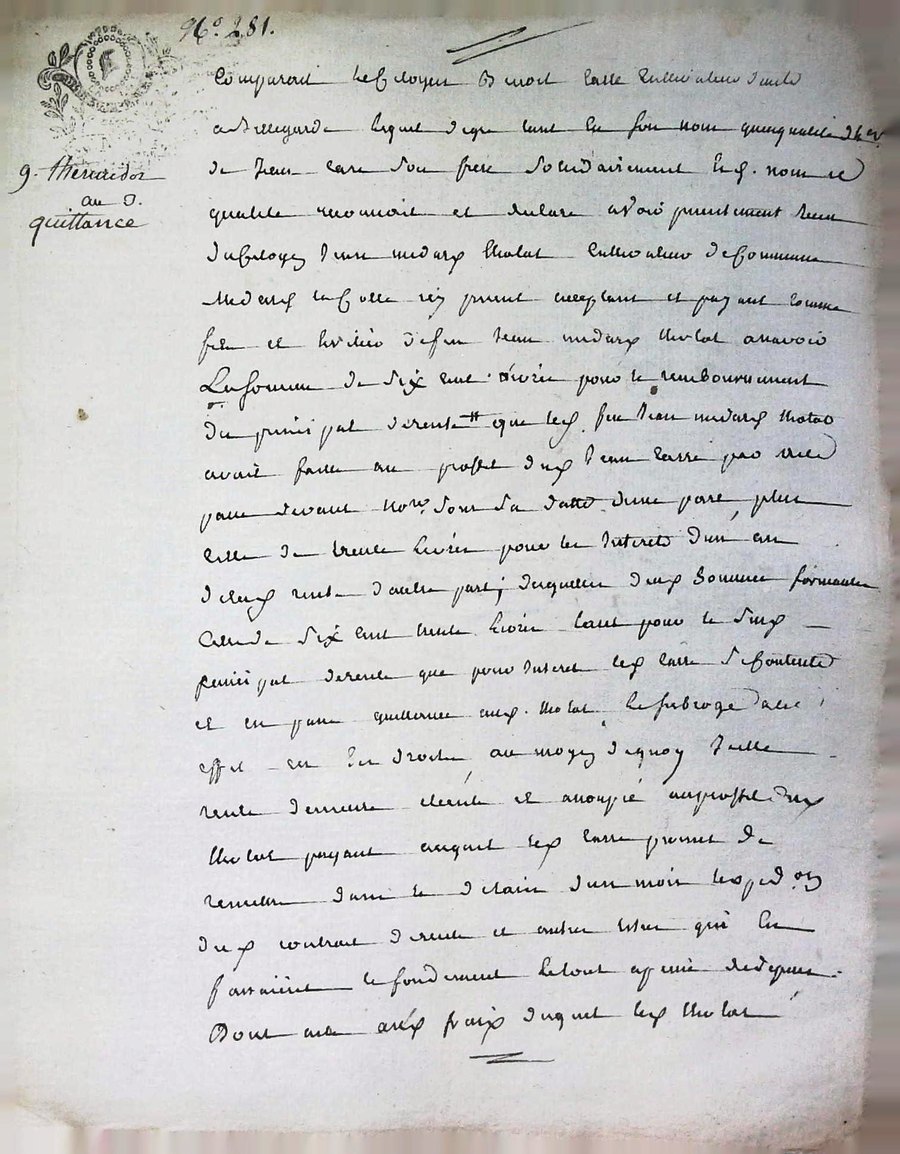 N.o 281.
9. thermidor
an 5.
quittance
Comparoit le Citoyen Benoit Carre Cultivateur
a Bellegarde lequel de gre tant en son nom qu'en qualité
de Jean Carre son frere solidairement Esd. nom et
qualite reconnoit et declare avoir presentement recu
du Citoyen Jean medard Cholat Cultivateur de Commune
medard icy present acceptant et payant comme
fils et heritier de feu Jean medard Cholat a savoir
La somme de six cent livres pour le remboursement
du principal de rente que led. feu Jean medard Cholat
avait faite au proffit dud Jean Carre par acte
passé devant Not.re sous sa datte d'une part, plus
Celle de trente livres pour les Interets d'un an
de lad rente d'autre part; desquelles deux sommes formantes
Celle de six cent trente livres tant pour le susd
principal de rente que pour Interet led Carre se contente
et en passe quittance aud. Cholat le subroge a cet
effet en ses droits au moyen de quoy
rente demeure eteinte et assoupie au proffit dud
Cholat payant auquel led Carre promet de
remettre dans le delai d'un mois l'exped.on
dud contrat de rente et autres titres qui en
faisaient le fondement le tout a peine de depens.
Dont acte aux fraix duquel led Cholat